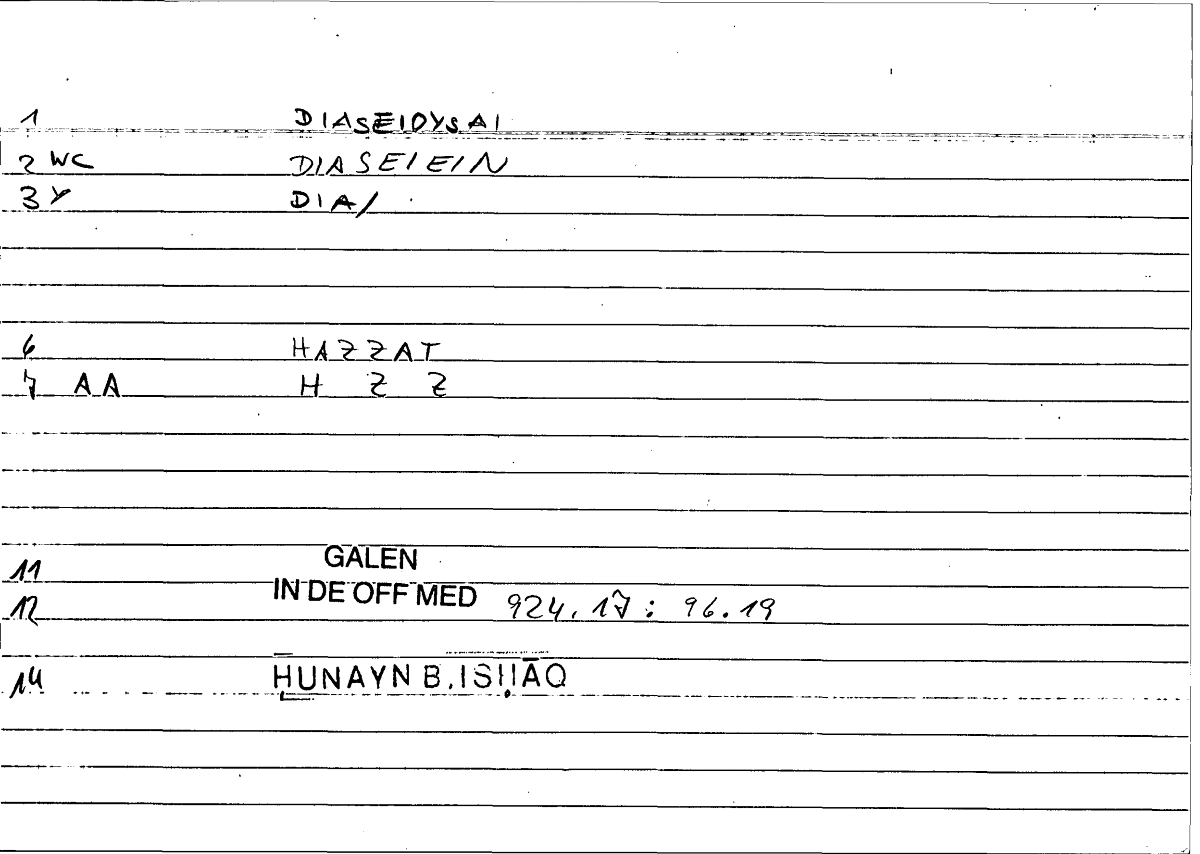 1 DIASEIOYSAI
2 WC DIASEIEIN
3 Y DIA/
6 HAZZAT
7 AA H Z Z
11 GALEN
12 IN DE OFF MED 924.17 : 96.19
14 ḤUNAYN B. ISḤĀQ